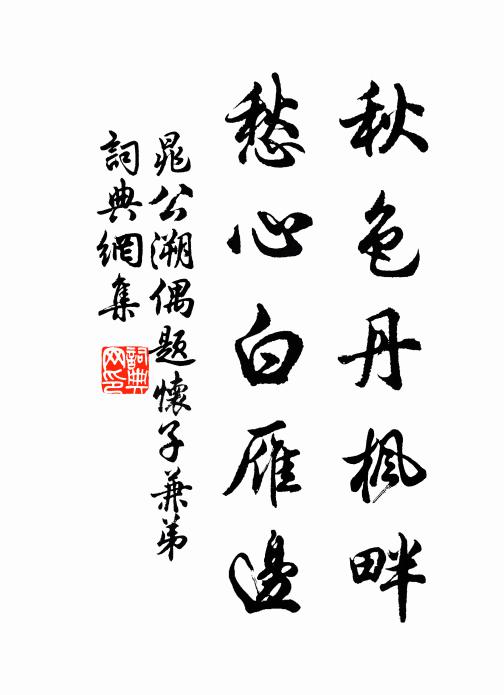 秋色丹楓畔
愁心白雁邊
晁公溯偶題懷子兼弟
詞典網集
詞典
网印